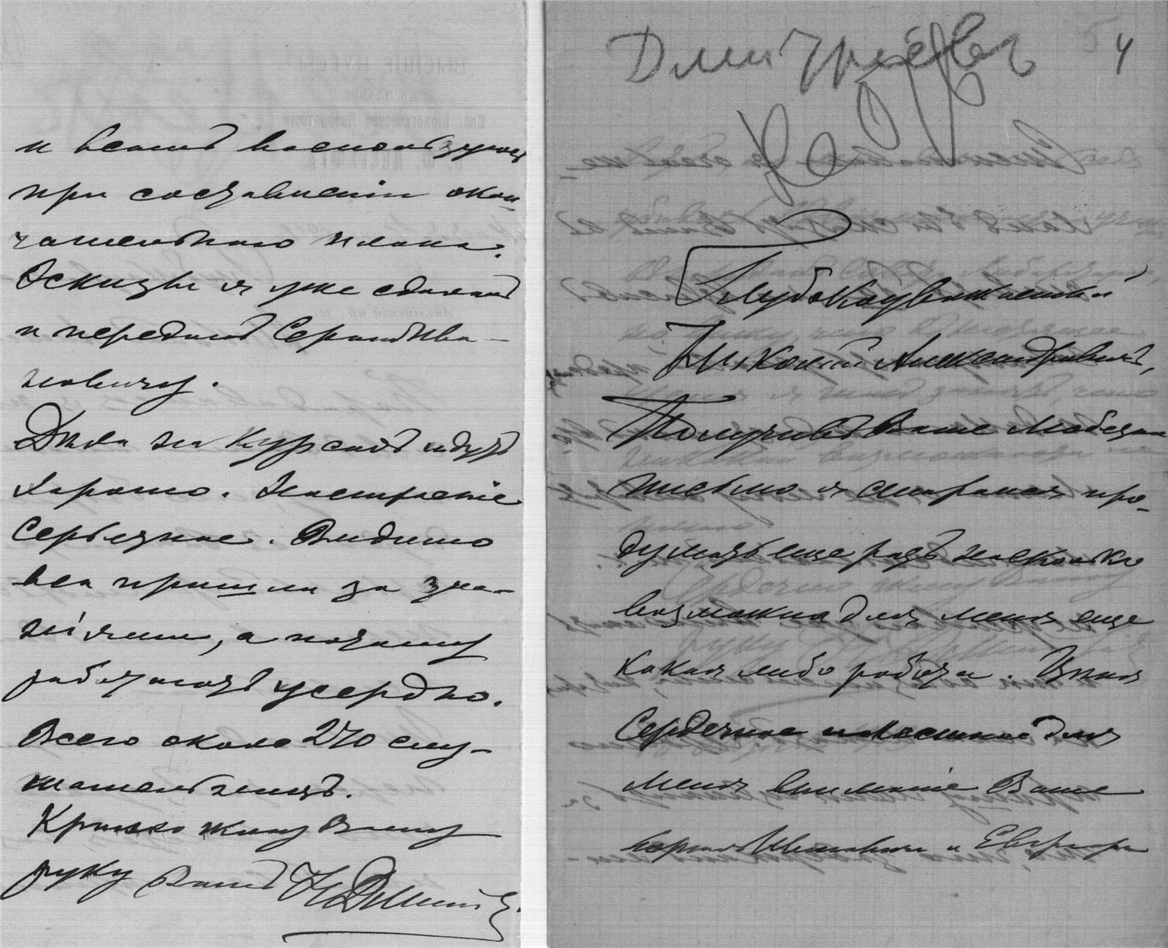 и всемъ воспользуюсь
при составленіи окон-
чательнаго плана.
Эскизы я уже сдѣлалъ
и передалъ Сергѣю Ива-
новичу.
Дѣла на Курсахъ идутъ
хорошо. Настроеніе
серьезное. Видимо
всѣ пришли за зна-
ніями, а потому
работаютъ усердно.
Всего около 240 слу-
шательницъ.
Крѣпко жму Вашу
руку Вашъ
Дмитріевъ
4
Глубокоуважаемый
Николай Александровичъ,
Получивъ Ваше любезное
письмо я старался про-
думать еще разъ насколько
возможна для меня еще
какая либо работа. Зная
сердечное и
для
меня вниманіе Ваше